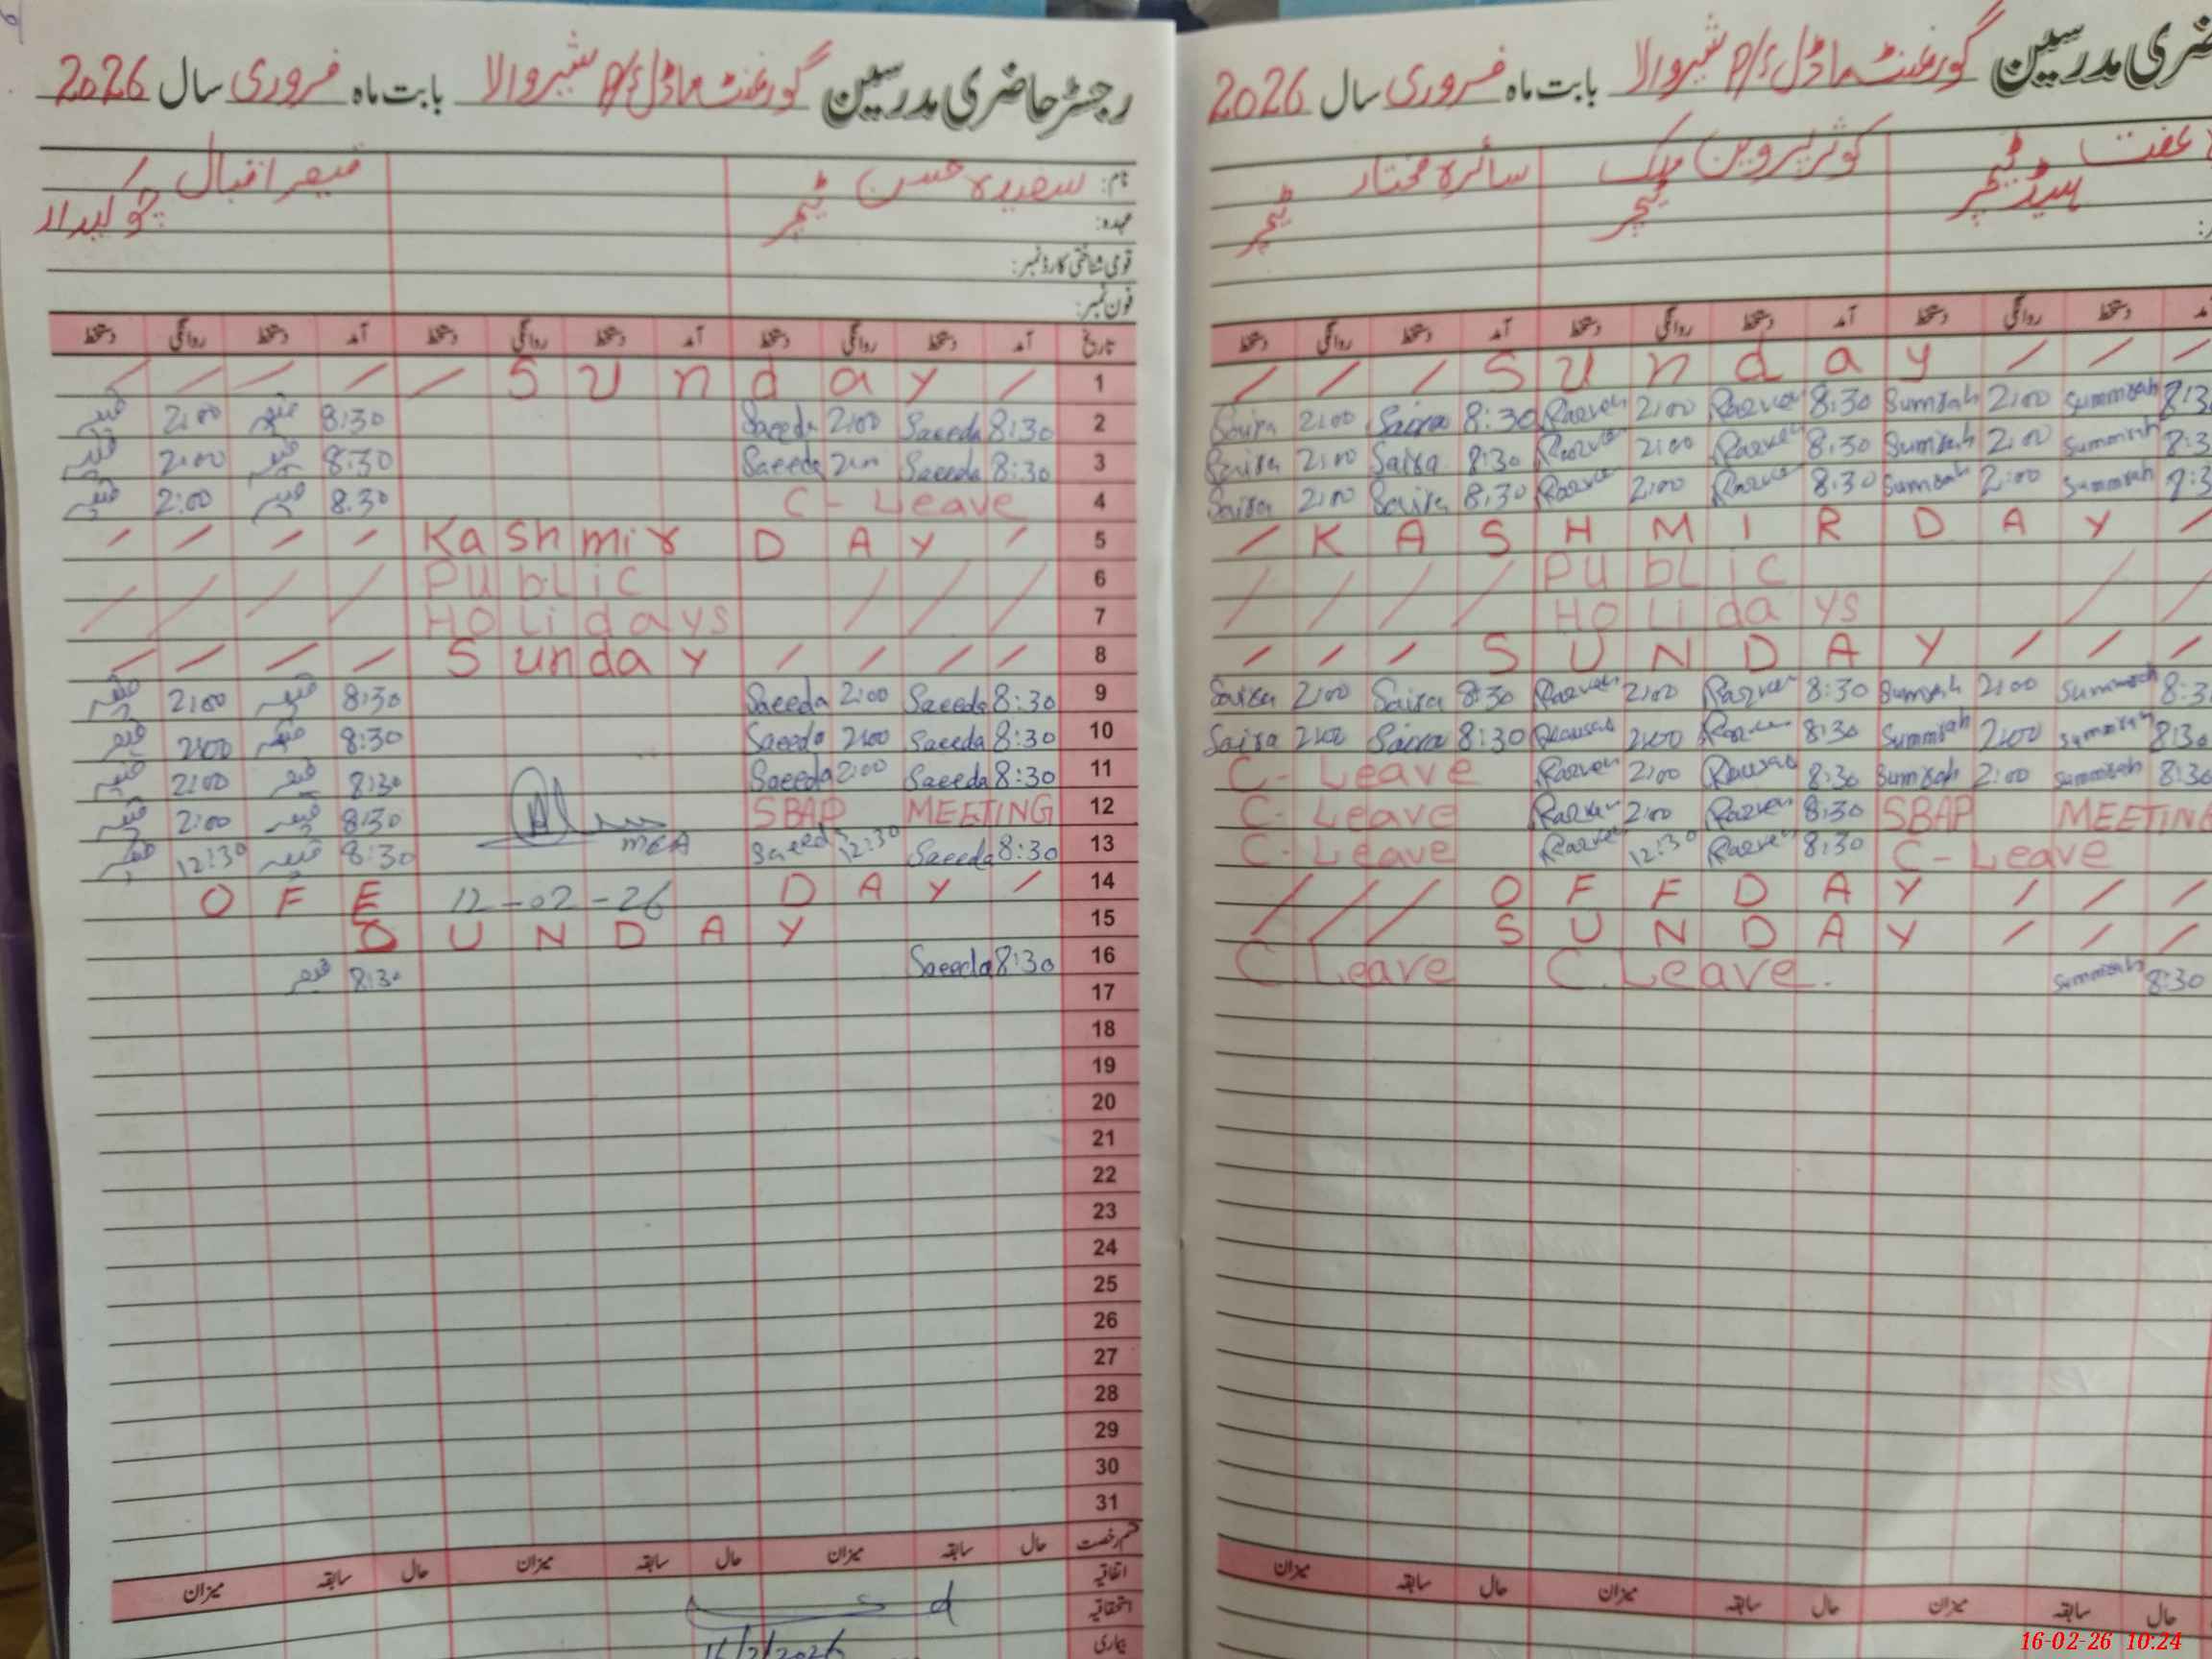 رجسٹر حاضری مدرسین گورنمنٹ ماڈل P/S شیروالا بابت ماہ فروری سال 2026
نام: سعیدہ حسن ٹیچر قیصر اقبال
عہدہ: چوکیدار
قومی شناختی کارڈ نمبر:
فون نمبر:
تاریخ آمد دستخط روانگی دستخط آمد دستخط روانگی دستخط آمد دستخط روانگی دستخط
/ / / / / S u n d a y / 1
قیصر 2:00 قیصر 8:30 Saeeda 2:00 Saeeda 8:30 2
قیصر 2:00 قیصر 8:30 Saeeda 2:00 Saeeda 8:30 3
قیصر 2:00 قیصر 8:30 C - Leave 4
/ / / / Kashmir D A Y / 5
/ / / / PUbLic / / / 6
/ / / / HoLidays / / / 7
/ / / / Sunday / / / / 8
قیصر 2:00 قیصر 8:30 Saeeda 2:00 Saeeda 8:30 9
قیصر 2:00 قیصر 8:30 Saeeda 2:00 Saeeda 8:30 10
قیصر 2:00 قیصر 8:30 Saeeda 2:00 Saeeda 8:30 11
قیصر 2:00 قیصر 8:30 SBAP MEETING 12
قیصر 12:30 قیصر 8:30 MEA Saeeda 12:30 Saeeda 8:30 13
O F F 12-02-26 D A Y / 14
S U N D A Y 15
قیصر 8:30 Saeeda 8:30 16
17
18
19
20
21
22
23
24
25
26
27
28
29
30
31
قسم رخصت حال سابقہ میزان حال سابقہ میزان حال سابقہ میزان
اتفاقیہ
استحقاقیہ
بیماری
16/2/2026
ضری مدرسین گورنمنٹ ماڈل P/S شیروالا بابت ماہ فروری سال 2026
عفت کوثر پروین ملک سائرہ مختار
ہیڈ ٹیچر ٹیچر ٹیچر
آمد دستخط روانگی دستخط آمد دستخط روانگی دستخط آمد دستخط روانگی دستخط
/ / / S u n d a y / / /
Saira 2:00 Saira 8:30 Razven 2:00 Razven 8:30 Sumrah 2:00 Summrah 8:3
Saira 2:00 Saira 8:30 Razven 2:00 Razven 8:30 Sumrah 2:00 Summrah 8:3
Saira 2:00 Saira 8:30 Razven 2:00 Razven 8:30 Sumrah 2:00 Summrah 8:3
/ K A S H M I R D A Y /
/ / / / PUbLic / /
/ / / / HOLidays / /
/ / / S U N D A Y / / /
Saira 2:00 Saira 8:30 Razven 2:00 Razven 8:30 Sumrah 2:00 Summrah 8:3
Saira 2:00 Saira 8:30 Kausar 2:00 Razven 8:30 Summrah 2:00 Summrah 8:30
C- Leave Razven 2:00 Kausar 8:30 Sumrah 2:00 Summrah 8:30
C- Leave Razven 2:00 Razven 8:30 SBAP MEETING
C- Leave Razven 12:30 Razven 8:30 C - Leave
/ / / O F F D A Y / / /
/ / / S U N D A Y / / /
C Leave C. Leave. Summrah 8:30
حال سابقہ میزان حال سابقہ میزان حال سابقہ میزان
16-02-26 10:24